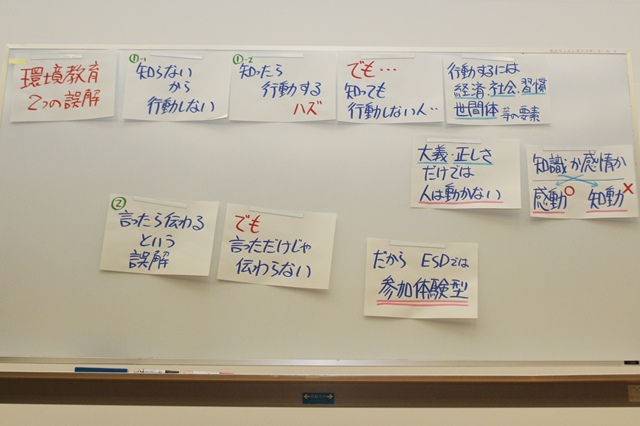 環境教育
2つの誤解
①-1
知らない
から
行動しない
①-2
知ったら
行動する
ハズ
でも…
知っても
行動しない人‥
行動するには
経済・社会・習慣
世間体 等の要素
大義・正しさ
だけでは
人は動かない
知識か感情か
感動○ 知動×
②
言ったら伝わる
という
誤解
でも
言っただけじゃ
伝わらない
だから ESDでは
参加体験型